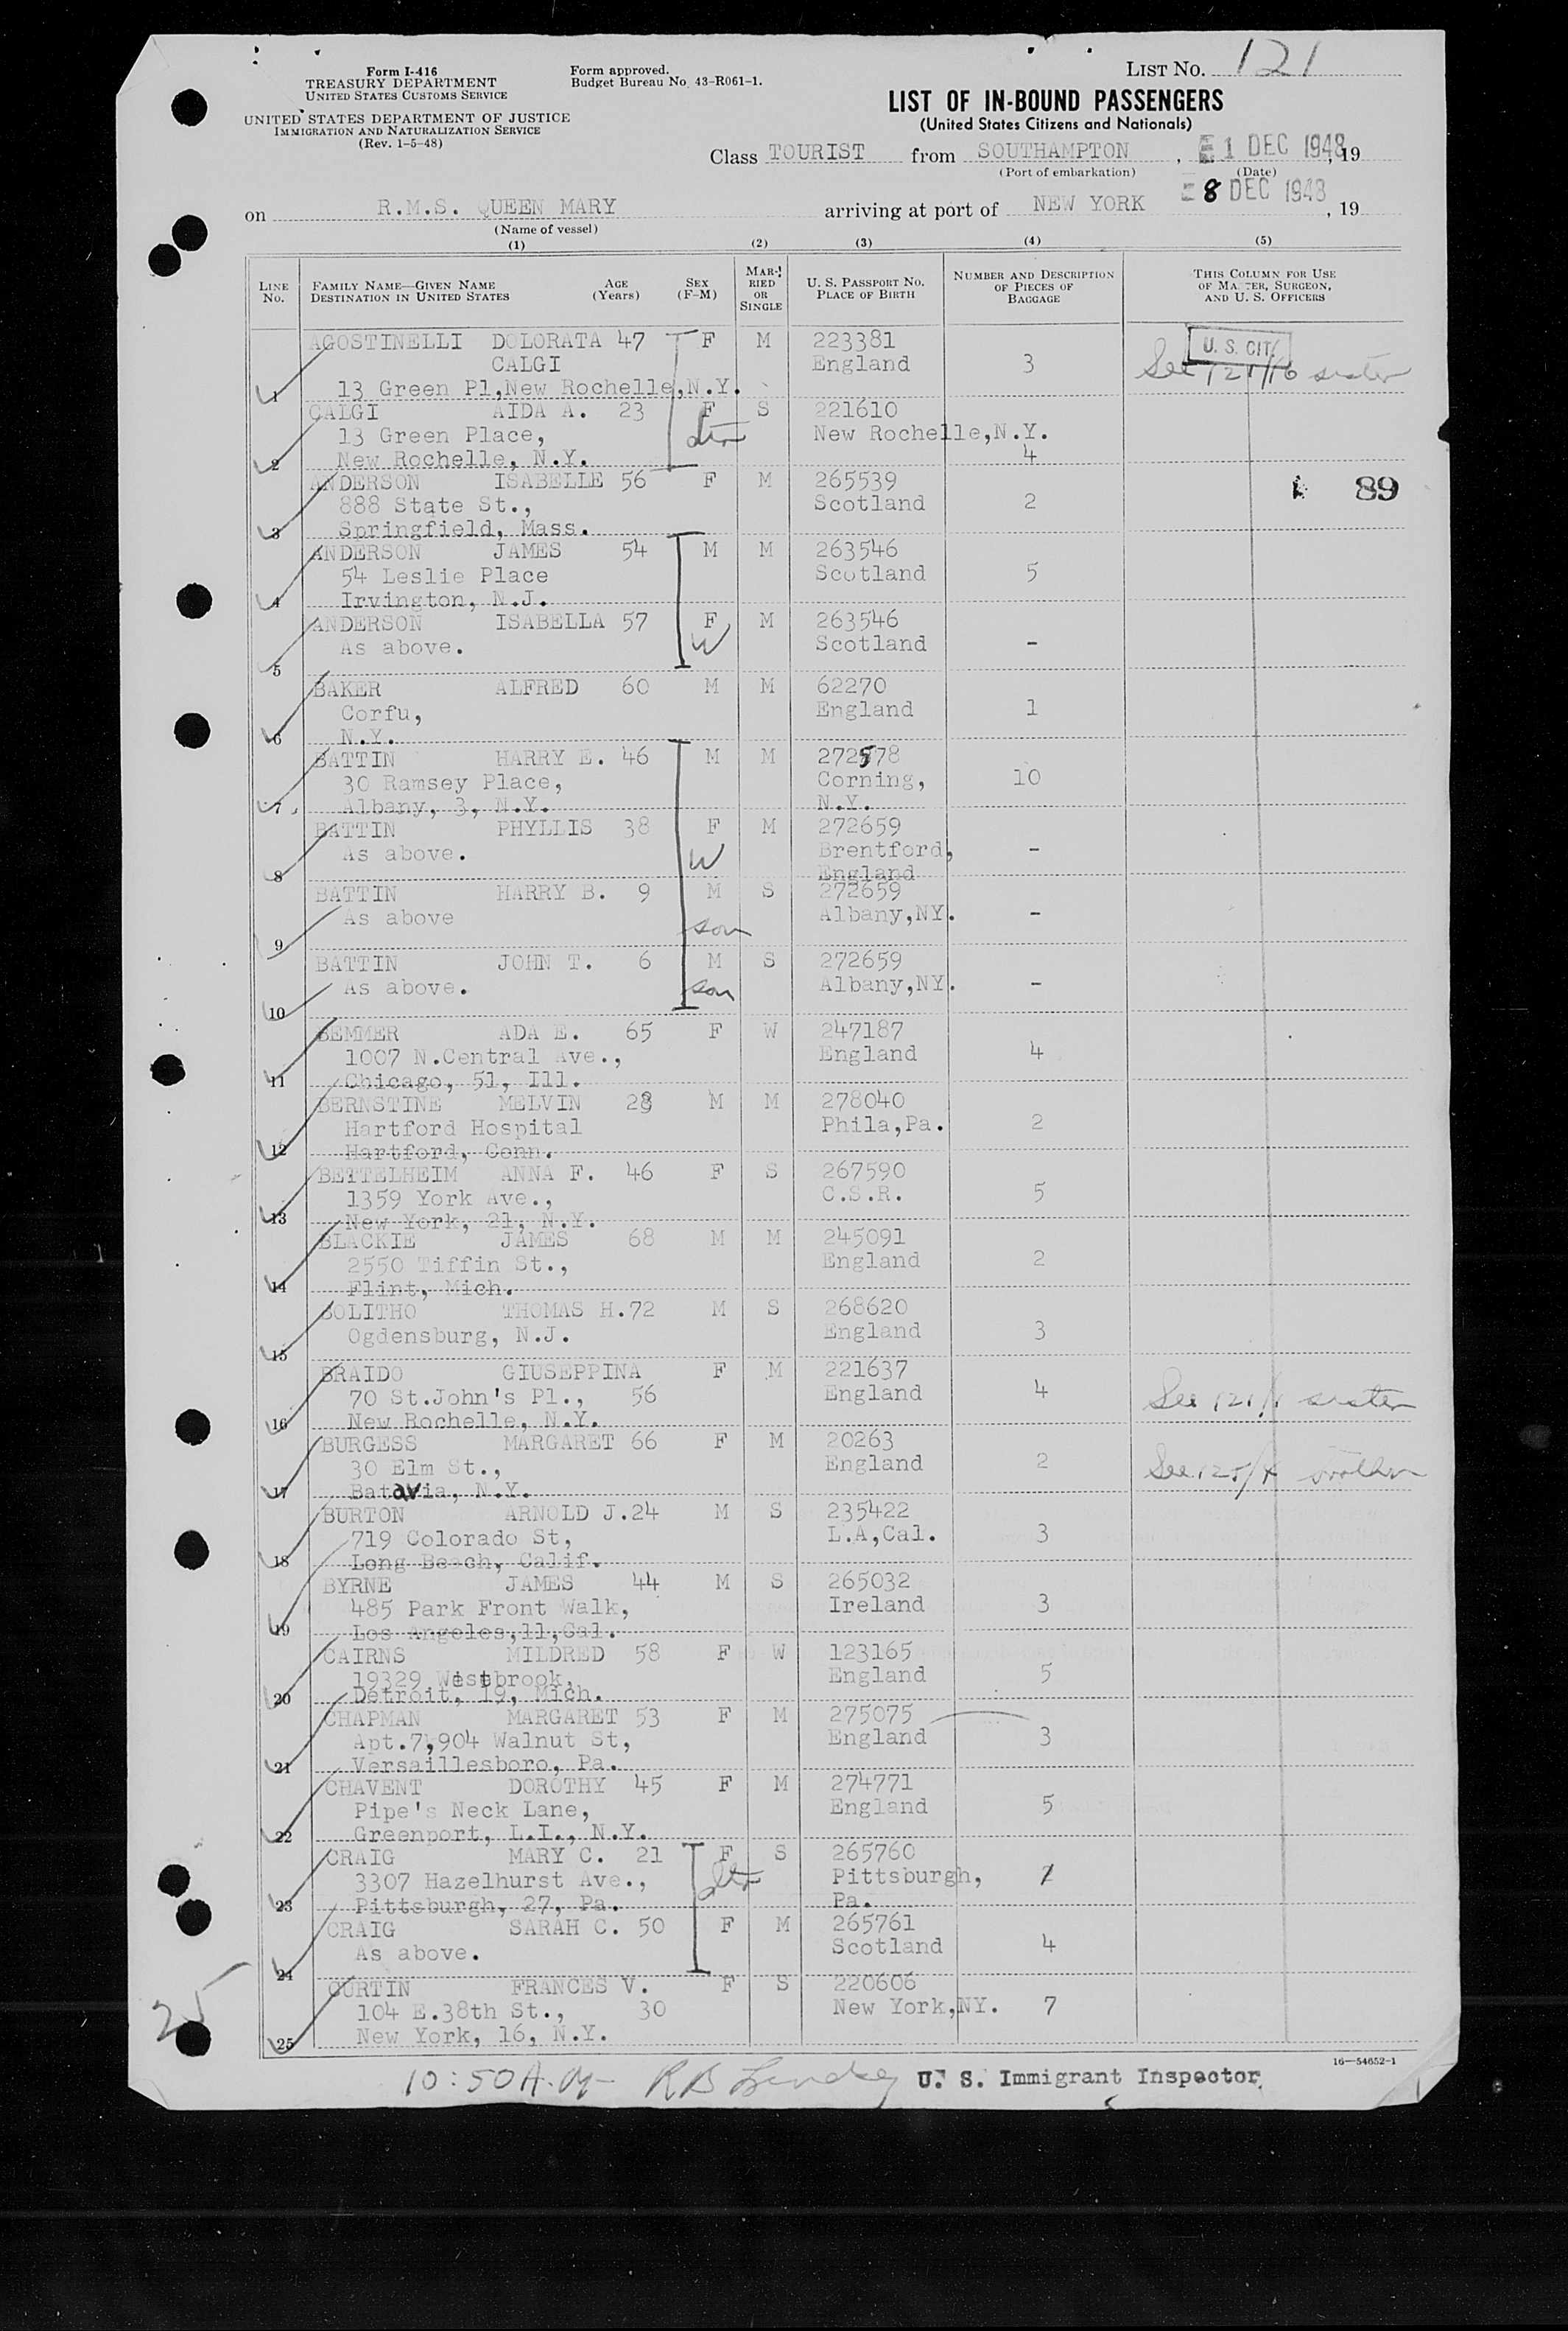 Form I-416
TREASURY DEPARTMENT
UNITED STATES CUSTOMS SERVICE
UNITED STATES DEPARTMENT OF JUSTICE
IMMIGRATION AND NATURALIZATION SERVICE
(Rev. 1-5-48)
Form approved.
Budget Bureau No. 43-R061-1.
LIST NO. 121
LIST OF IN-BOUND PASSENGERS
(United States Citizens and Nationals)
Class TOURIST from SOUTHAMPTON, 1 DEC 1948, 19
(Port of embarkation) (Date)
on R.M.S. QUEEN MARY arriving at port of NEW YORK 8 DEC 1948, 19
(Name of vessel)
(1) (2) (3) (4) (5)
LINE NO.
FAMILY NAME—GIVEN NAME
DESTINATION IN UNITED STATES
AGE (Years)
SEX (F-M)
MARRIED OR SINGLE
U. S. PASSPORT NO.
PLACE OF BIRTH
NUMBER AND DESCRIPTION OF PIECES OF BAGGAGE
THIS COLUMN FOR USE OF MASTER, SURGEON, AND U. S. OFFICERS
AGOSTINELLI DOLORATA 47 F M 223381 U. S. CIT
CALGI England 3 See 121/16 sister
1 13 Green Pl,New Rochelle,N.Y.
CALGI AIDA A. 23 F S 221610
13 Green Place, dtr New Rochelle,N.Y.
2 New Rochelle, N.Y. 4
ANDERSON ISABELLE 56 F M 265539 89
888 State St., Scotland 2
3 Springfield, Mass.
ANDERSON JAMES 54 M M 263546
54 Leslie Place Scotland 5
4 Irvington, N.J.
ANDERSON ISABELLA 57 F M 263546
As above. W Scotland -
5
BAKER ALFRED 60 M M 62270
Corfu, England 1
6 N.Y.
BATTIN HARRY E. 46 M M 272578
30 Ramsey Place, Corning, 10
7 Albany, 3, N.Y. N.Y.
BATTIN PHYLLIS 38 F M 272659
As above. W Brentford, -
8 England
BATTIN HARRY B. 9 M S 272659
As above son Albany,NY. -
9
BATTIN JOHN T. 6 M S 272659
As above. son Albany,NY. -
10
BEMMER ADA E. 65 F W 247187
1007 N.Central Ave., England 4
11 Chicago, 51, Ill.
BERNSTINE MELVIN 28 M M 278040
Hartford Hospital Phila,Pa. 2
12 Hartford, Conn.
BETTELHEIM ANNA F. 46 F S 267590
1359 York Ave., C.S.R. 5
13 New York, 21, N.Y.
BLACKIE JAMES 68 M M 245091
2550 Tiffin St., England 2
14 Flint, Mich.
BOLITHO THOMAS H. 72 M S 268620
Ogdensburg, N.J. England 3
15
BRAIDO GIUSEPPINA F M 221637
70 St.John's Pl., 56 England 4 See 121/1 sister
16 New Rochelle, N.Y.
BURGESS MARGARET 66 F M 20263
30 Elm St., England 2 See 125/4 brother
17 Batavia, N.Y.
BURTON ARNOLD J. 24 M S 235422
719 Colorado St, L.A,Cal. 3
18 Long Beach, Calif.
BYRNE JAMES 44 M S 265032
485 Park Front Walk, Ireland 3
19 Los Angeles,11,Cal.
CAIRNS MILDRED 58 F W 123165
19329 Westbrook, England 5
20 Detroit, 19, Mich.
CHAPMAN MARGARET 53 F M 275075
Apt.7,904 Walnut St, England 3
21 Versaillesboro, Pa.
CHAVENT DOROTHY 45 F M 274771
Pipe's Neck Lane, England 5
22 Greenport, L.I., N.Y.
CRAIG MARY C. 21 F S 265760
3307 Hazelhurst Ave., dtr Pittsburgh,
23 Pittsburgh, 27, Pa. Pa.
CRAIG SARAH C. 50 F M 265761
As above. Scotland 4
24
CURTIN FRANCES V. F S 220606
104 E.38th St., 30 New York,NY. 7
25 New York, 16, N.Y.
25
16—54652-1
10:50 A.M. U. S. Immigrant Inspector